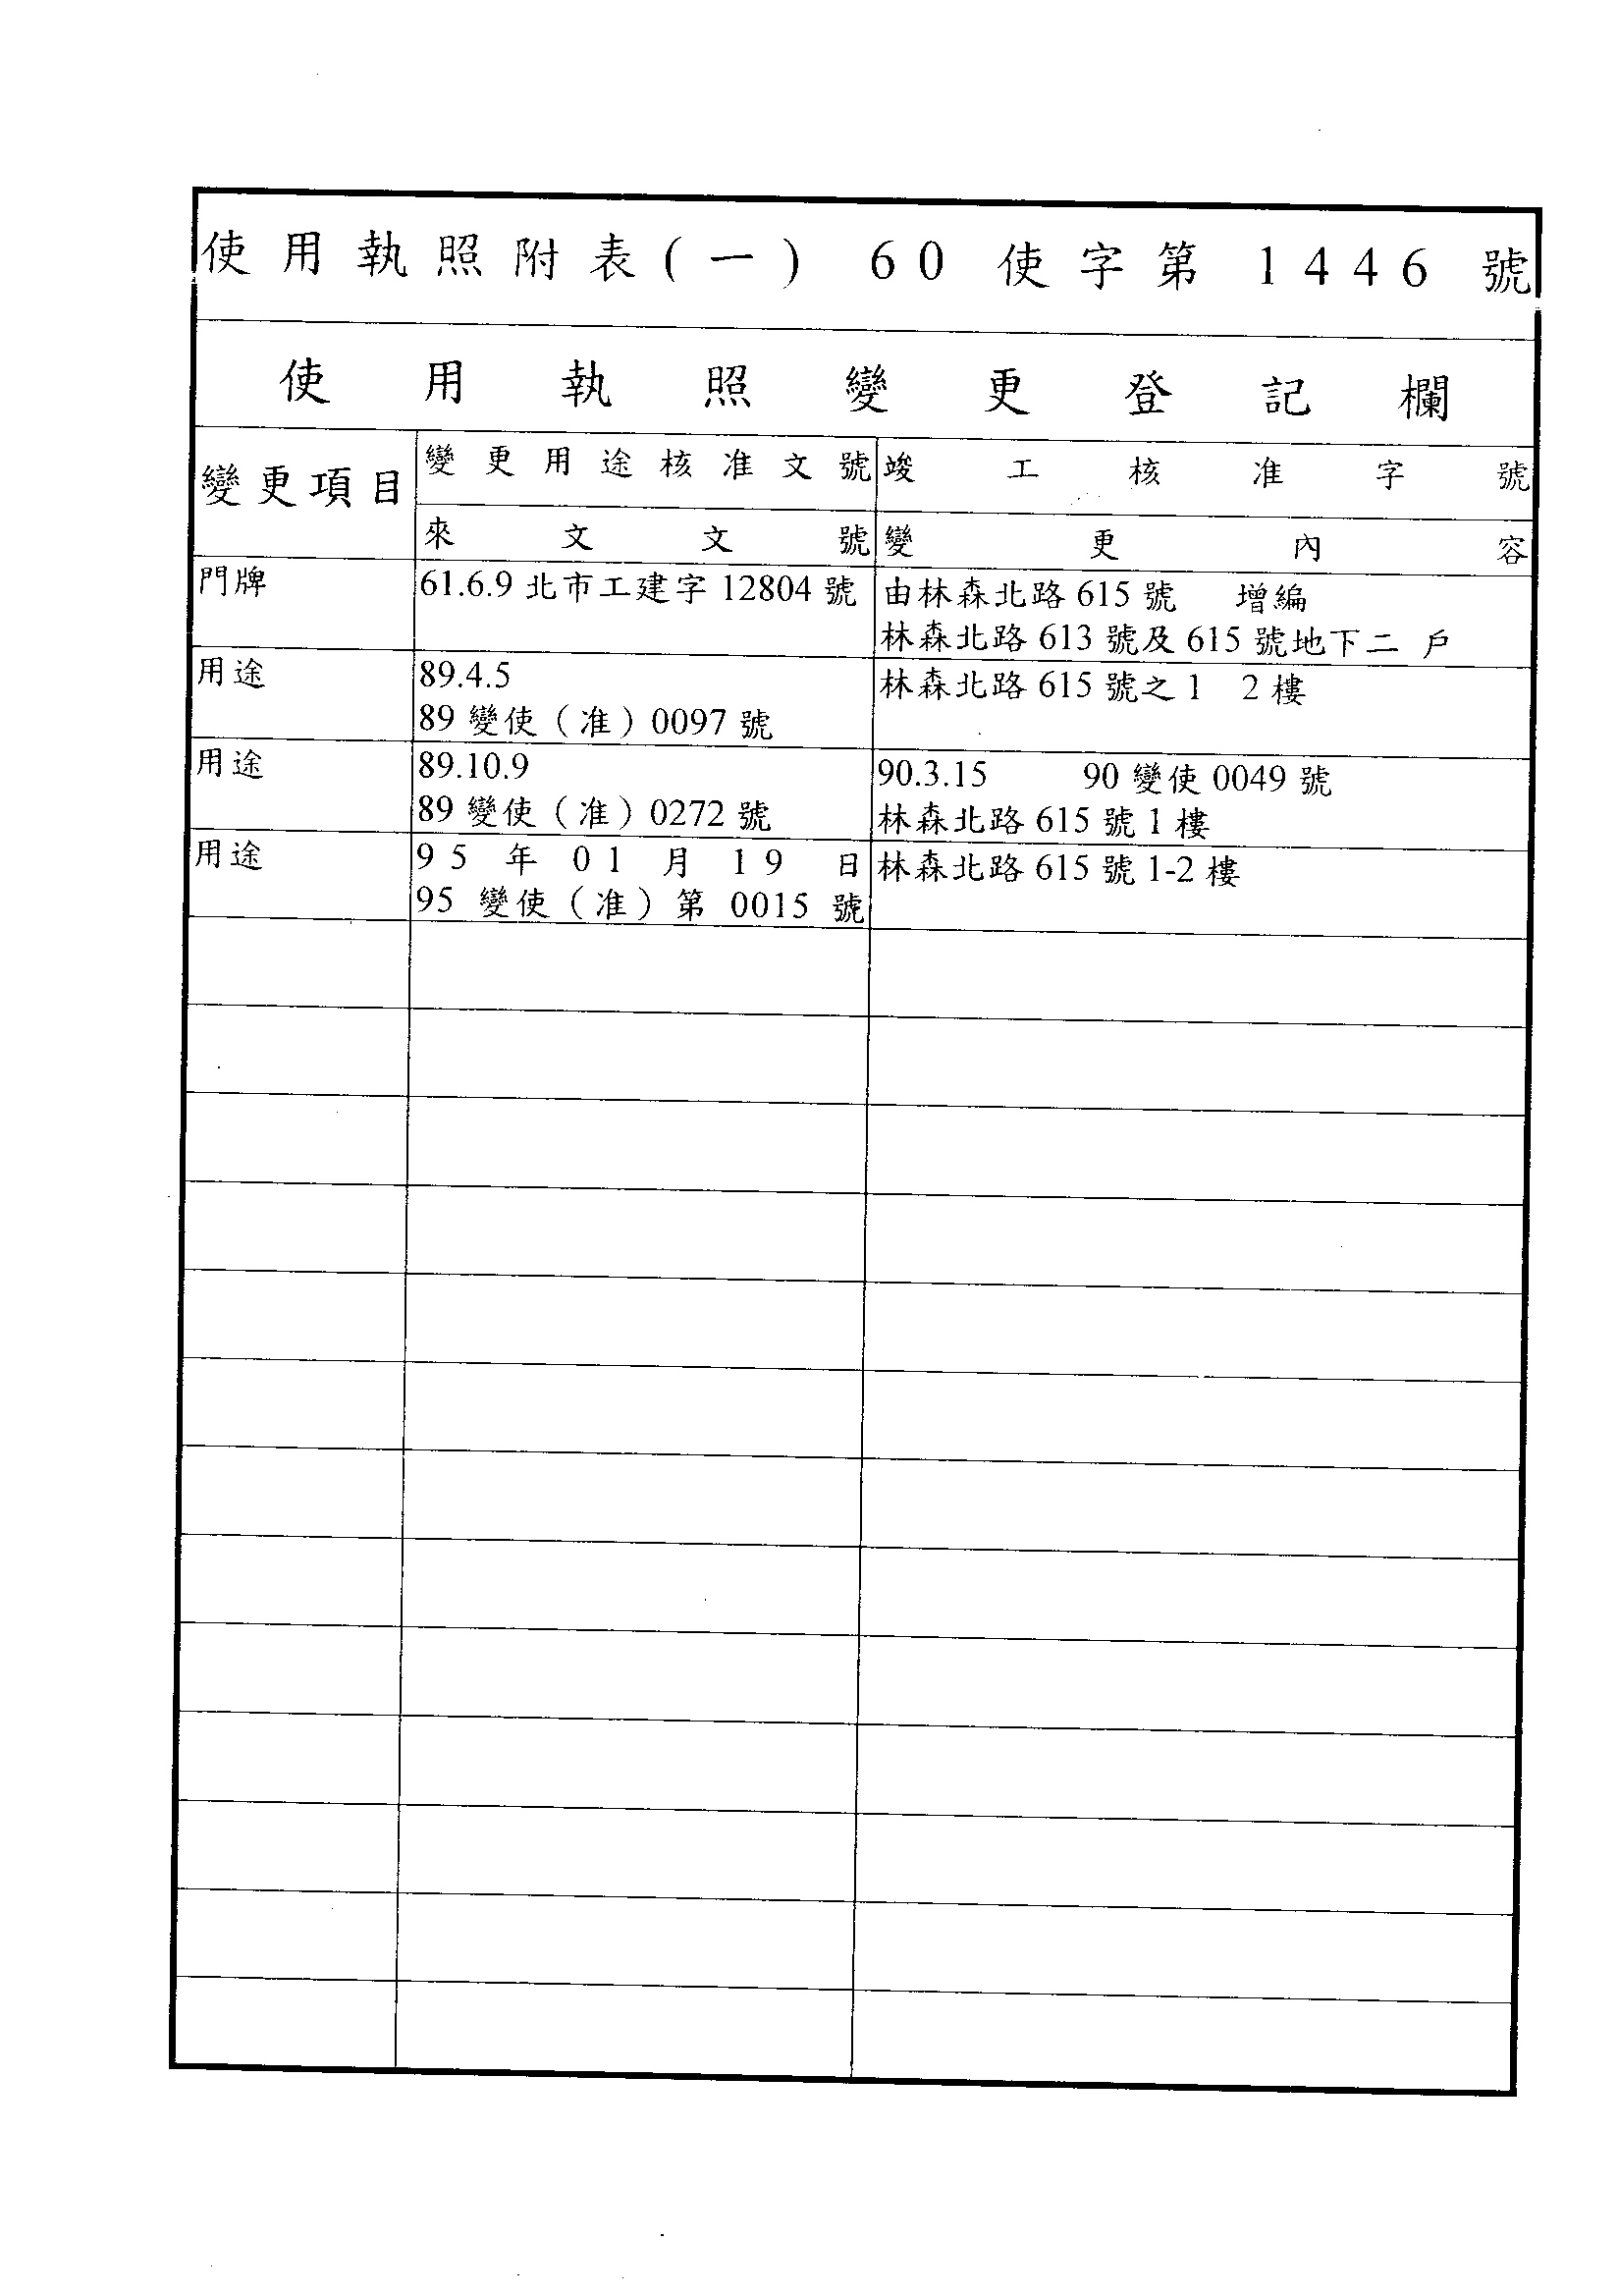 使用執照附表(一) 60 使字第 1446 號
使用執照變更登記欄
變更項目
變更用途核准文號
竣工核准字號
來文文號
變更內容
門牌
61.6.9 北市工建字 12804 號
由林森北路 615 號 增編
林森北路 613 號及 615 號地下二 戶
用途
89.4.5
89 變使（准）0097 號
林森北路 615 號之 1 2 樓
用途
89.10.9
89 變使（准）0272 號
90.3.15 90 變使 0049 號
林森北路 615 號 1 樓
用途
95 年 01 月 19 日
95 變使（准）第 0015 號
林森北路 615 號 1-2 樓